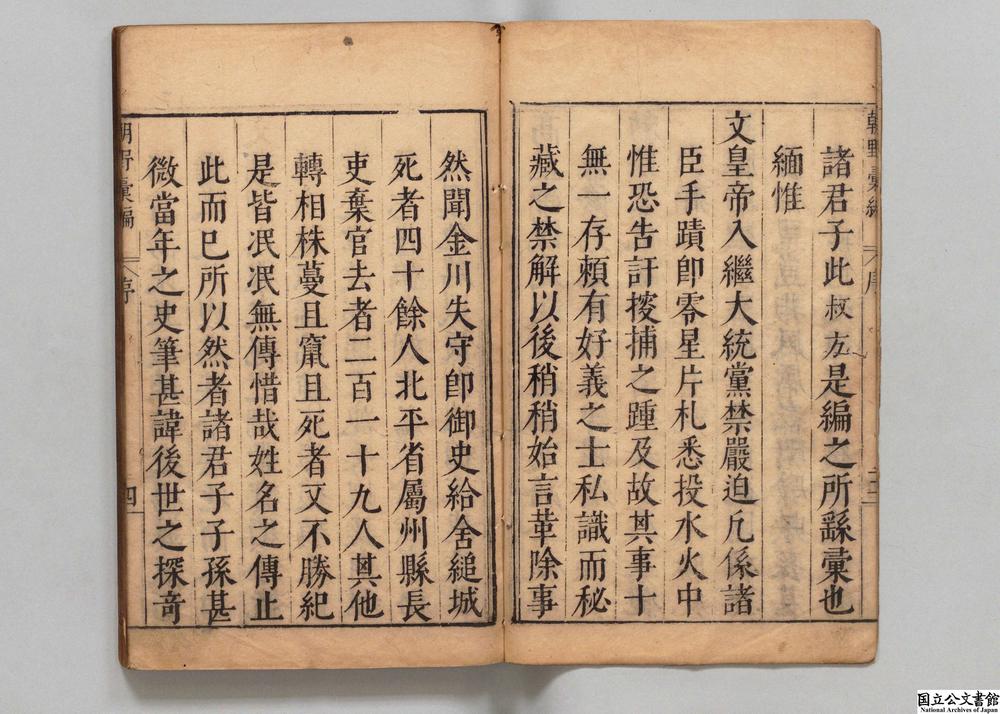 朝野彙編
序
三
諸君子此叔方是編之所繇彙也
緬惟
文皇帝入繼大統黨禁嚴迫凡係諸
臣手蹟卽零星片札悉投水火中
惟恐告訐搜捕之踵及故其事十
無一存賴有好義之士私識而秘
藏之禁解以後稍稍始言革除事
然聞金川失守卽御史給舍縋城
死者四十餘人北平省屬州縣長
吏棄官去者二百一十九人其他
轉相株蔓且竄且死者又不勝紀
是皆泯泯無傳惜哉姓名之傳止
此而已所以然者諸君子子孫甚
微當年之史筆甚諱後世之探奇
朝野彙編
序
四
国立公文書館
National Archives of Japan